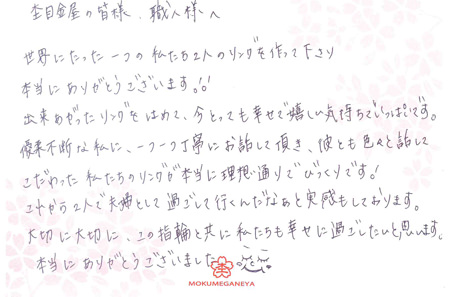 杢目金屋の皆様、職人様へ
世界にたった一つの私たち2人のリングを作って下さり
本当にありがとうございます!!
出来あがったリングをはめて、今とっても幸せで嬉しい気持ちでいっぱいです。
優柔不断な私に、一つ一つ丁寧にお話して頂き、彼とも色々と話して
こだわった私たちのリングが本当に理想通りでびっくりです!
これから2人で夫婦として過ごして行くんだなぁと実感もしております。
大切に大切に、この指輪と共に私たちも幸せに過ごしたいと思います。
本当にありがとうございました
MOKUMEGANEYA